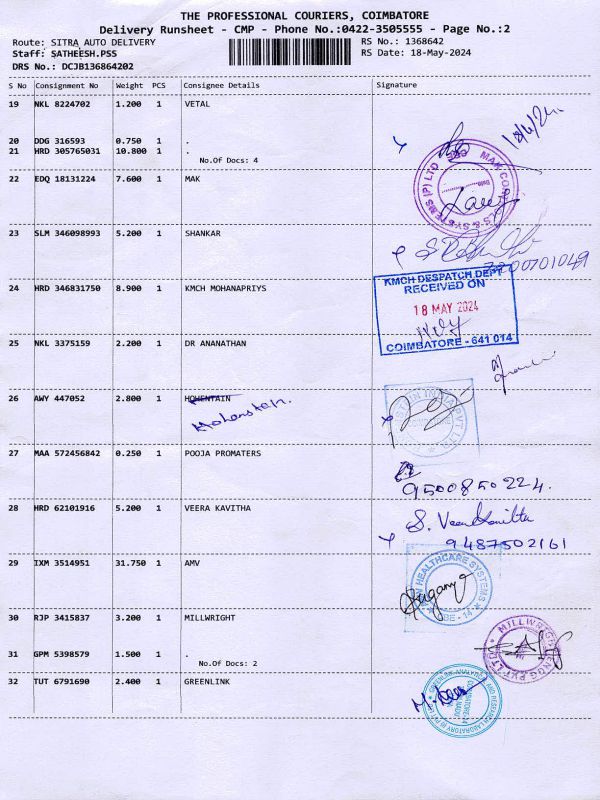 THE PROFESSIONAL COURIERS, COIMBATORE
Delivery Runsheet - CMP - Phone No.:0422-3505555 - Page No.:2
Route: SITRA AUTO DELIVERY RS No.: 1368642
Staff: SATHEESH.PSS RS Date: 18-May-2024
DRS No.: DCJB136864202
S No Consignment No Weight PCS Consignee Details Signature
19 NKL 8224702 1.200 1 VETAL
20 DDG 316593 0.750 1 .
21 HRD 305765031 10.800 1 .
No.Of Docs: 4
22 EDQ 18131224 7.600 1 MAK
23 SLM 346098993 5.200 1 SHANKAR
24 HRD 346831750 8.900 1 KMCH MOHANAPRIYS
KMCH DESPATCH DEPT
RECEIVED ON
18 MAY 2024
COIMBATORE - 641 014
25 NKL 3375159 2.200 1 DR ANANATHAN
26 AWY 447052 2.800 1 HOHENTAIN
27 MAA 572456842 0.250 1 POOJA PROMATERS
9500850224.
28 HRD 62101916 5.200 1 VEERA KAVITHA
S. Veera Kavitha
9487502161
29 IXM 3514951 31.750 1 AMV
HEALTHCARE SYSTEMS
30 RJP 3415837 3.200 1 MILLWRIGHT
31 GPM 5398579 1.500 1 .
No.Of Docs: 2
32 TUT 6791690 2.400 1 GREENLINK